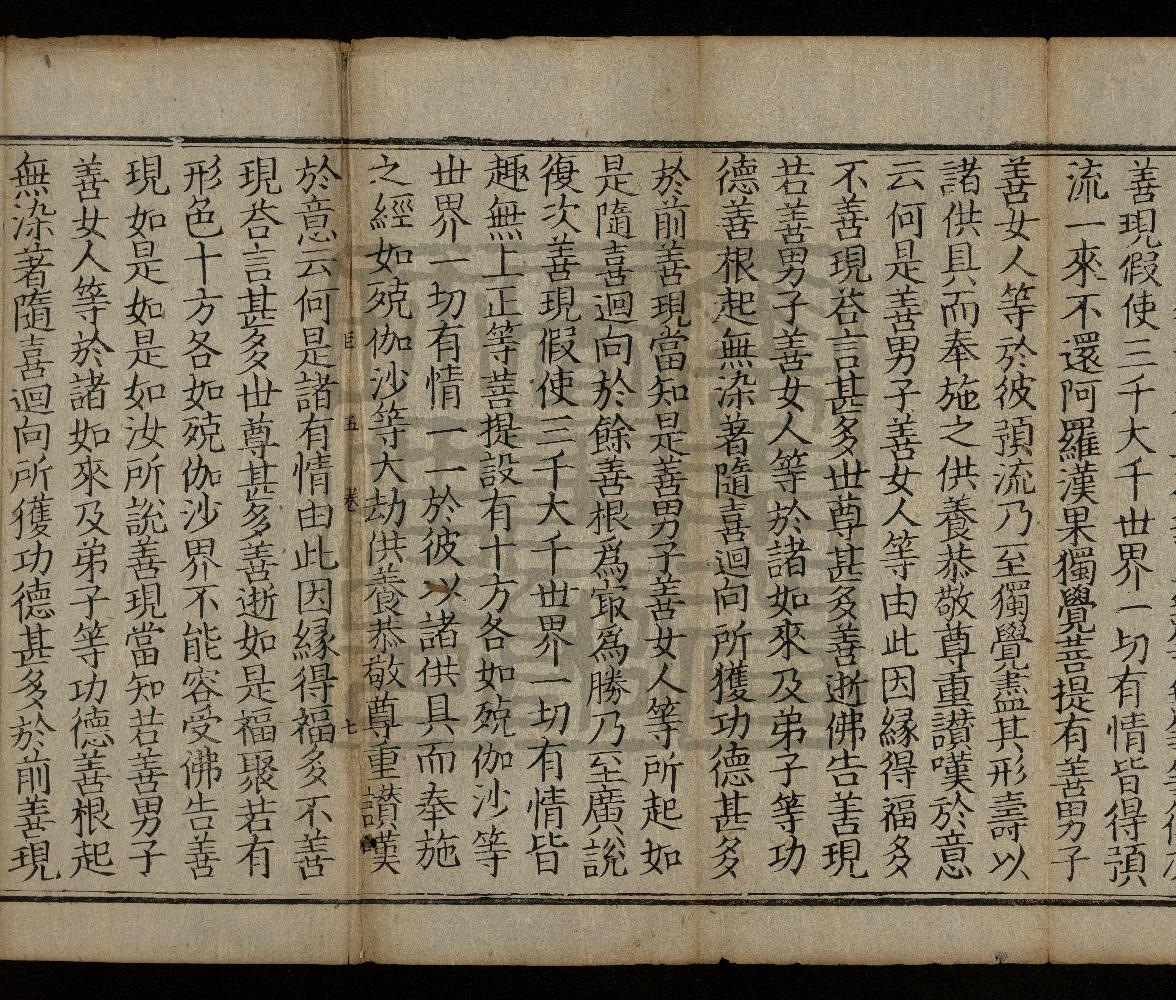 善現假使三千大千世界一切有情皆得預
流一來不還阿羅漢果獨覺菩提有善男子
善女人等於彼預流乃至獨覺盡其形壽以
諸供具而奉施之供養恭敬尊重讃嘆於意
云何是善男子善女人等由此因緣得福多
不善現荅言甚多世尊甚多善逝佛告善現
若善男子善女人等於諸如來及弟子等功
德善根起無染著隨喜迴向所獲功德甚多
於前善現當知是善男子善女人等所起如
是隨喜迴向於餘善根爲㝡爲勝乃至廣說
復次善現假使三千大千世界一切有情皆
趣無上正等菩提設有十方各如殑伽沙等
世界一切有情一一於彼以諸供具而奉施
之經如殑伽沙等大劫供養恭敬尊重讃嘆
五 卷 七
於意云何是諸有情由此因緣得福多不善
現荅言甚多世尊甚多善逝如是福聚若有
形色十方各如殑伽沙界不能容受佛告善
現如是如是如汝所說善現當知若善男子
善女人等於諸如來及弟子等功德善根起
無染著隨喜迴向所獲功德甚多於前善現